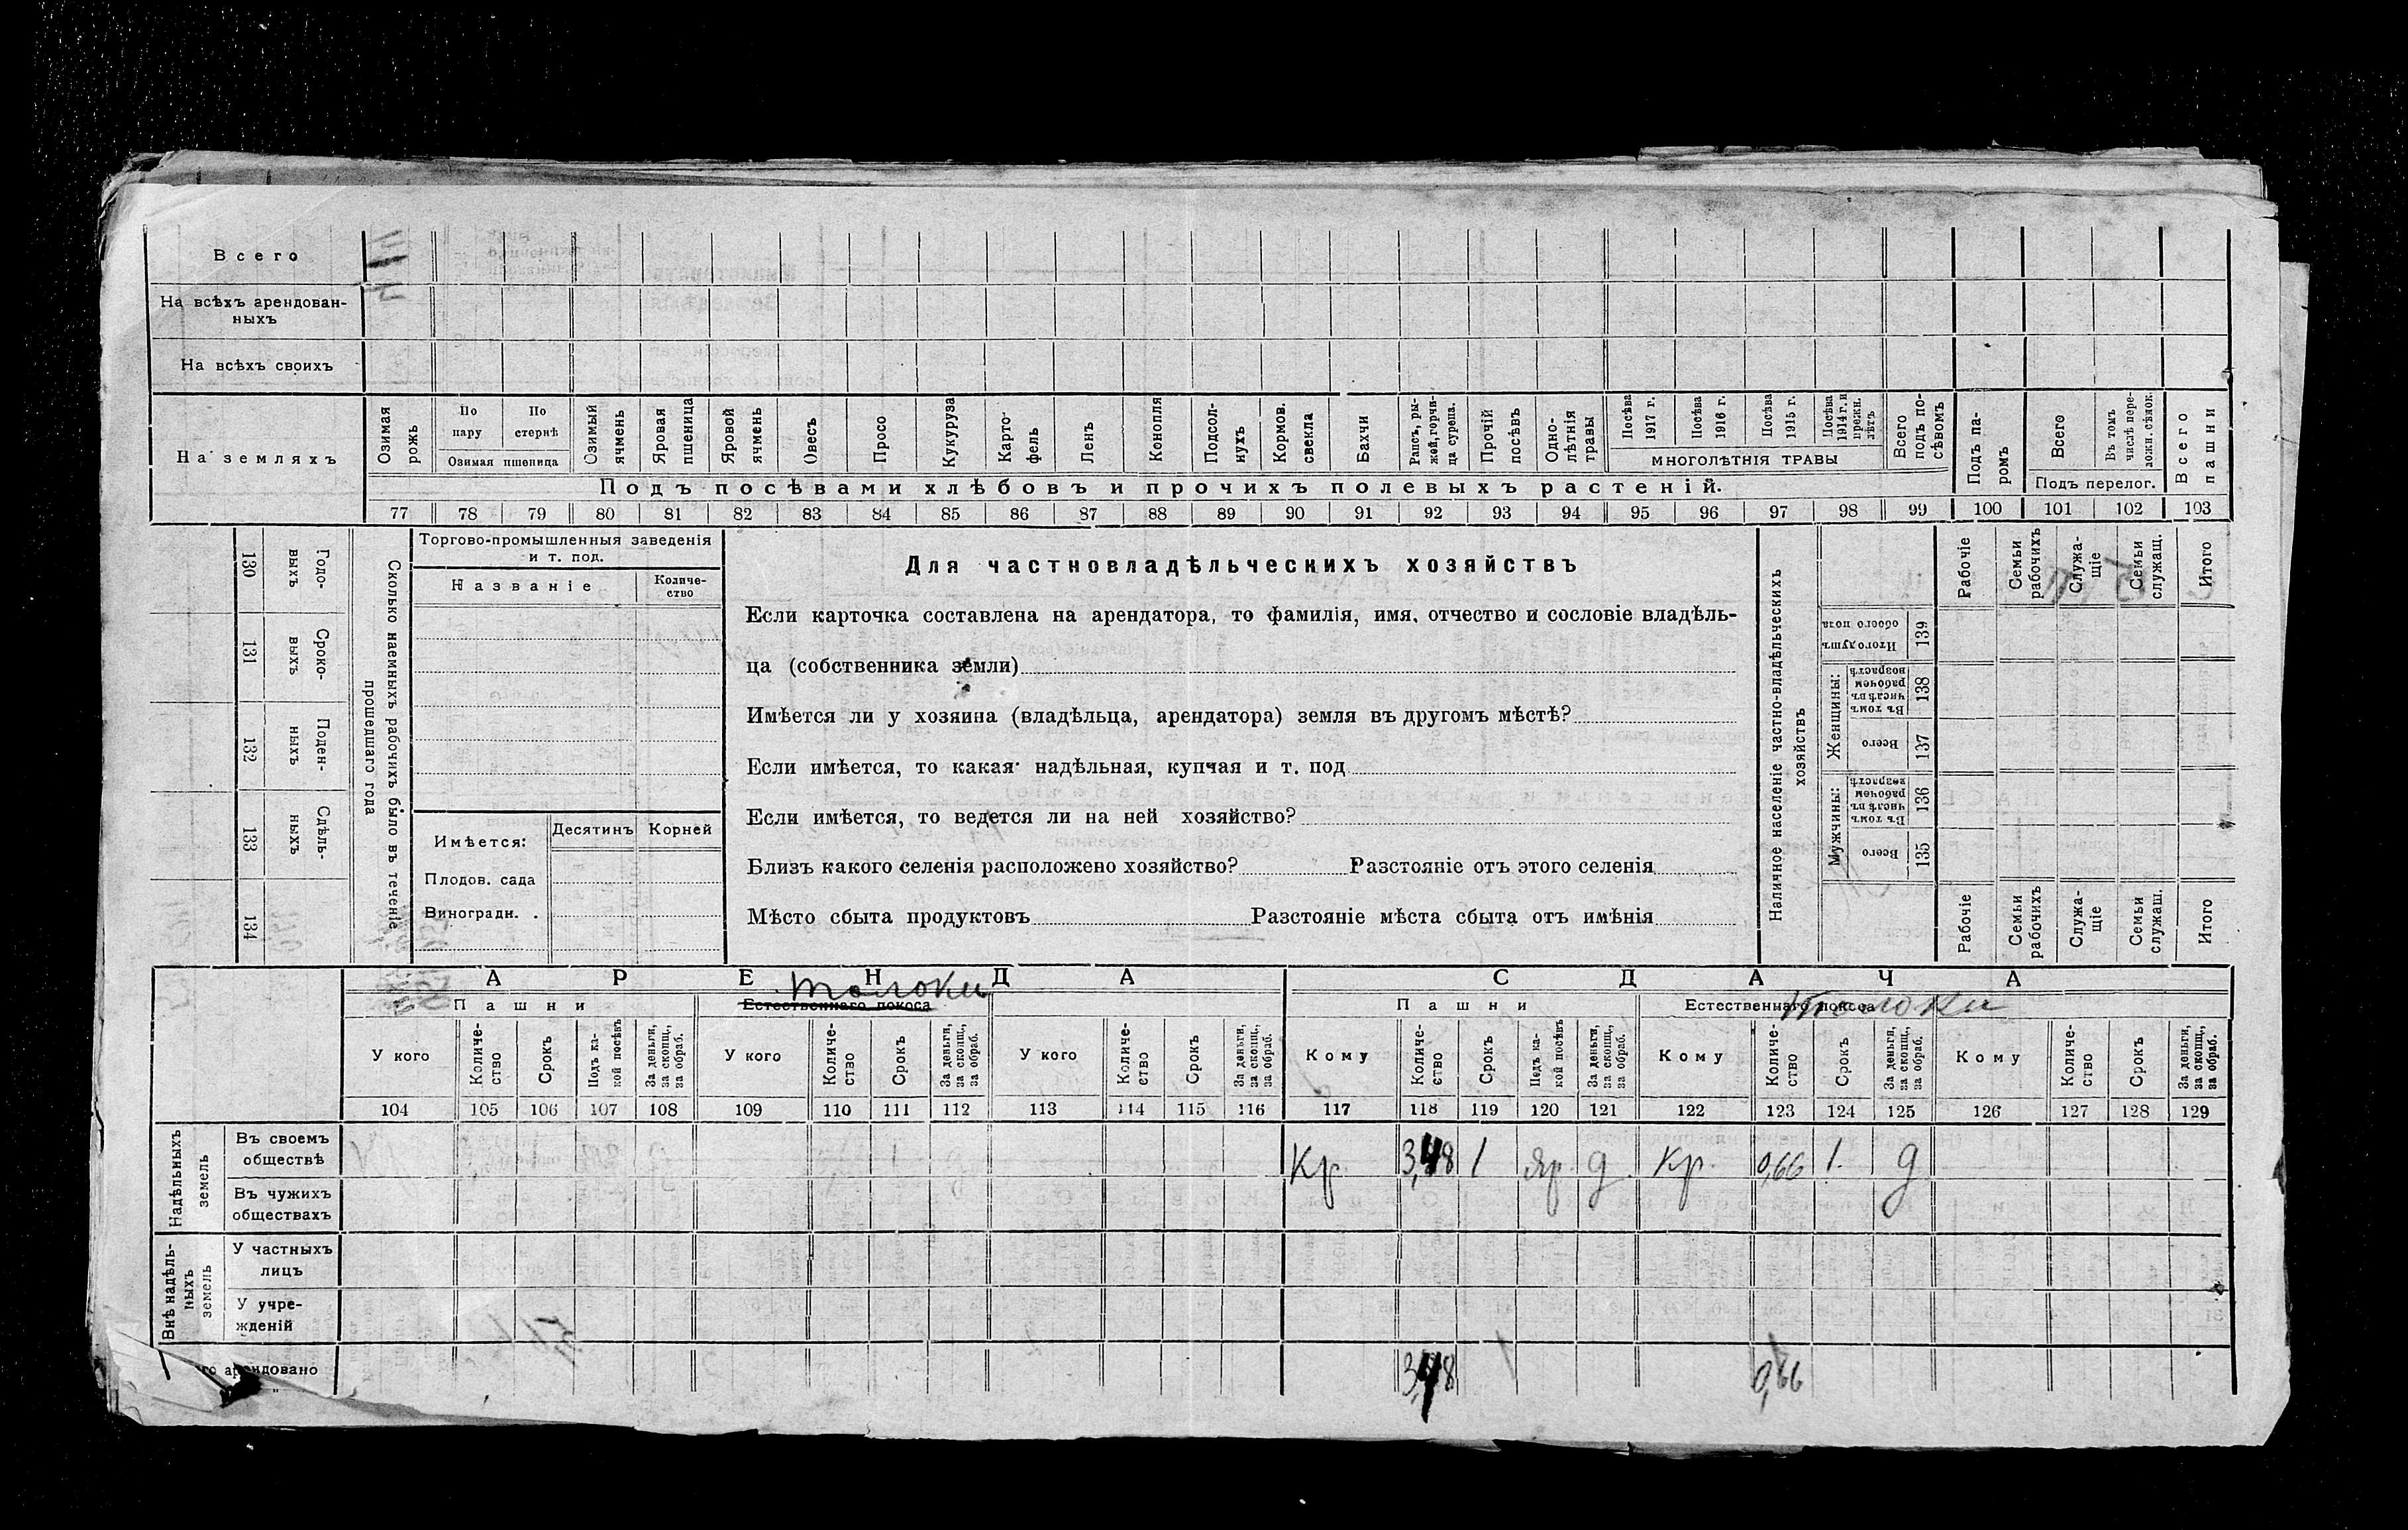 Всего
На всѣхъ арендован-
ныхъ
На всѣхъ своихъ
На земляхъ
Озимая рожь
По пару
По стернѣ
Озимая пшеница
Озимый ячмень
Яровая пшеница
Яровой ячмень
Овесъ
Просо
Кукуруза
Карто-
фель
Ленъ
Конопля
Подсол-
нухъ
Кормов. свекла
Бахчи
Рапсъ, ры-
жей, горчи-
ца сурепа.
Прочій посѣвъ
Одно-
лѣтнія травы
Посѣва 1917 г.
Посѣва 1916 г.
Посѣва 1915 г.
Посѣва 1914 г. и прежн. лѣтъ
МНОГОЛѢТНІЯ ТРАВЫ
Всего подъ по-
сѣвомъ
Подъ па-
ромъ
Всего
Въ томъ числѣ пере-
ложн. сѣнок.
Подъ перелог.
Всего пашни
Подъ посѣвами хлѣбовъ и прочихъ полевыхъ растеній.
77 78 79 80 81 82 83 84 85 86 87 88 89 90 91 92 93 94 95 96 97 98 99 100 101 102 103
130 131 132 133 134
Годо-
выхъ
Сроко-
выхъ
Поден-
ныхъ
Сдѣль-
ныхъ
Сколько наемныхъ рабочихъ было въ теченіе
прошедшаго года
Торгово-промышленныя заведенія
и т. под.
Названіе
Количе-
ство
Имѣется:
Десятинъ
Корней
Плодов. сада
Виноградн. .
Для частновладѣльческихъ хозяйствъ
Если карточка составлена на арендатора, то фамилія, имя, отчество и сословіе владѣль-
ца (собственника земли)
Имѣется ли у хозяина (владѣльца, арендатора) земля въ другомъ мѣстѣ?
Если имѣется, то какая: надѣльная, купчая и т. под
Если имѣется, то ведется ли на ней хозяйство?
Близъ какого селенія расположено хозяйство? Разстояніе отъ этого селенія
Мѣсто сбыта продуктовъ Разстояніе мѣста сбыта отъ имѣнія
Наличное населеніе частно-владѣльческихъ
хозяйствъ
Рабочіе
Семьи рабочихъ
Служа-
щіе
Семьи служащ.
Итого
Итого душъ обоего пола
139
Женщины:
Въ томъ числѣ въ рабочем возрастѣ
138
Всего
137
Мужчины:
Въ томъ числѣ въ рабочем возрастѣ
136
Всего
135
Рабочіе
Семьи рабочихъ
Служа-
щіе
Семьи служащ.
Итого
АРЕНДА
СДАЧА
Пашни
Естественнаго покоса
толоки
Пашни
Естественнаго покоса
толоки
У кого
Количе-
ство
Срокъ
Подъ ка-
кой посѣвъ
За деньги, за скопщ., за обраб.
У кого
Количе-
ство
Срокъ
За деньги, за скопщ., за обраб.
У кого
Количе-
ство
Срокъ
За деньги, за скопщ., за обраб.
Кому
Количе-
ство
Срокъ
Подъ ка-
кой посѣвъ
За деньги, за скопщ., за обраб.
Кому
Количе-
ство
Срокъ
За деньги, за скопщ., за обраб.
Кому
Количе-
ство
Срокъ
За деньги, за скопщ., за обраб.
104 105 106 107 108 109 110 111 112 113 114 115 116 117 118 119 120 121 122 123 124 125 126 127 128 129
Надѣльныхъ
земель
Въ своемъ
обществѣ
Кр. 3,48 1 яр. д. Кр. 0,66 1. д
Въ чужихъ
обществахъ
Внѣ надѣль-
ныхъ
земель
У частныхъ
лицъ
У учре-
жденій
арендовано
"
3,48 0,66